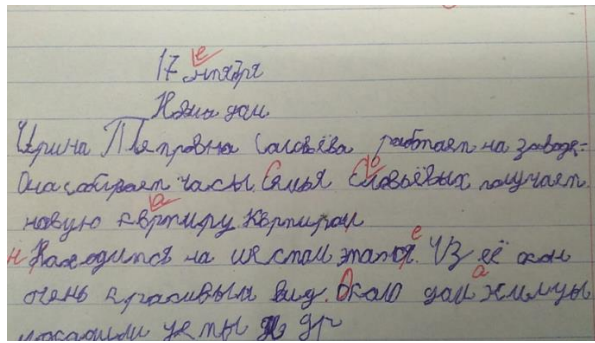 17 нтября
Нова дом
Ирина Тяпровна Саловёва работает на заводе
Она собирает часы Семья Словьёвых получает
новую квртиру Квртирам
Находится на шестом этаже. Из её окон
очень красивым вид. Около дом жилцы
посадили цеты и др